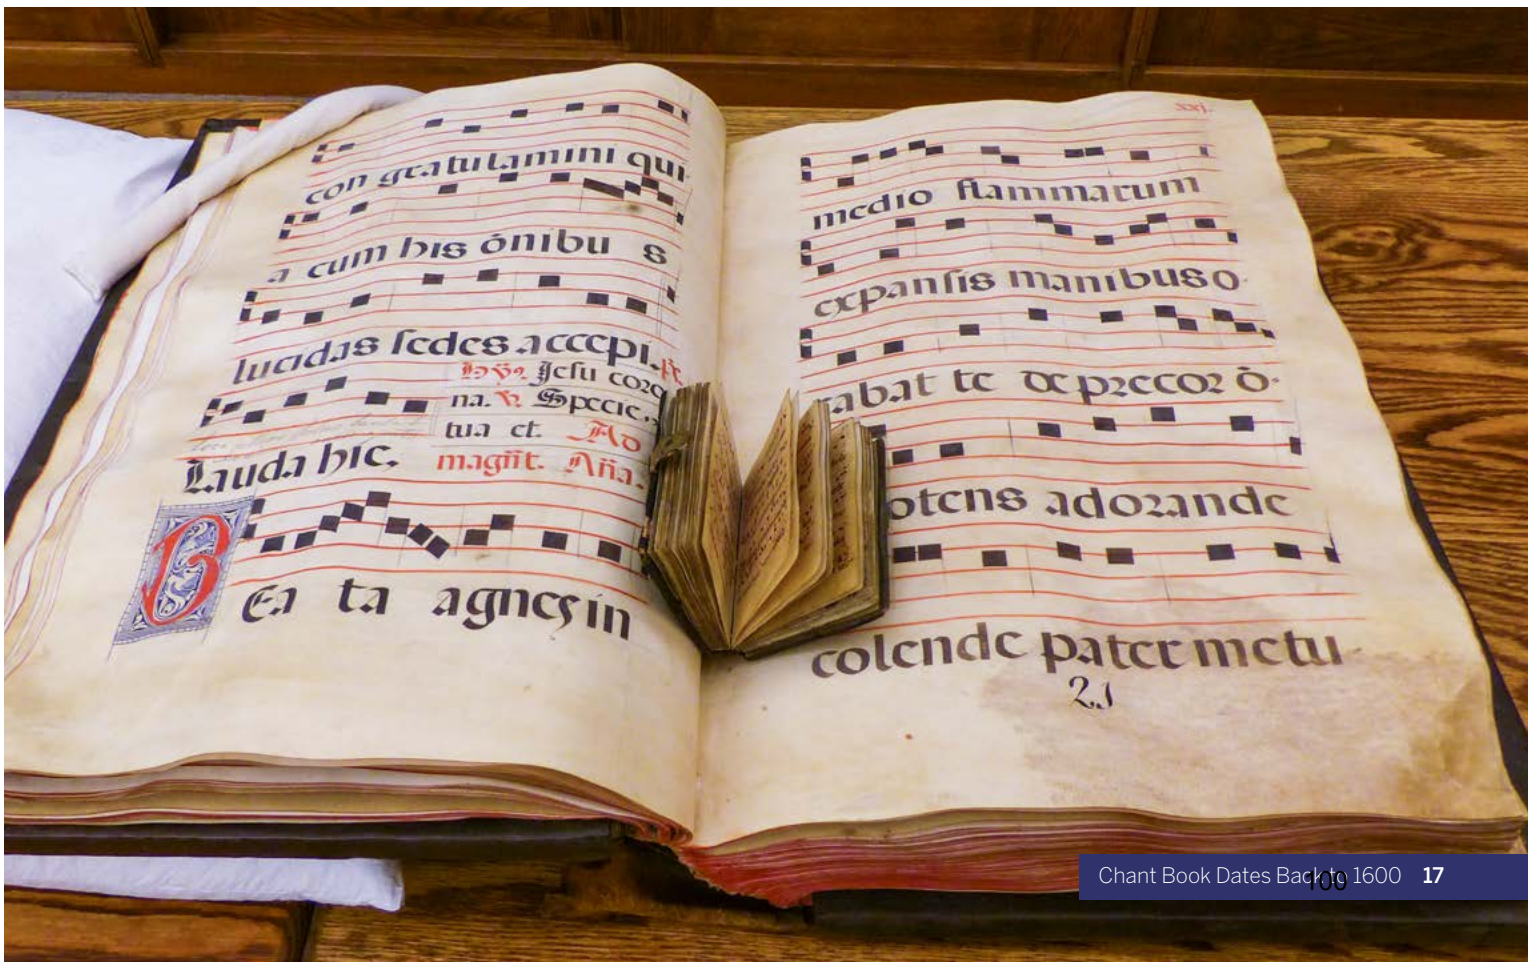 con gratulamini qui
a cum his ōnibu s
lucidas sedes accepi.
Jesu coro
na. Specie.
tua et. Ad
Lauda hic. magn̄t. An̄a.
BEa ta agnes in
xxj.
medio flammarum
expansis manibus o
rabat te deprecor ō
otens adorande
colende pater metu
21
Chant Book Dates Back to 1600 17
100